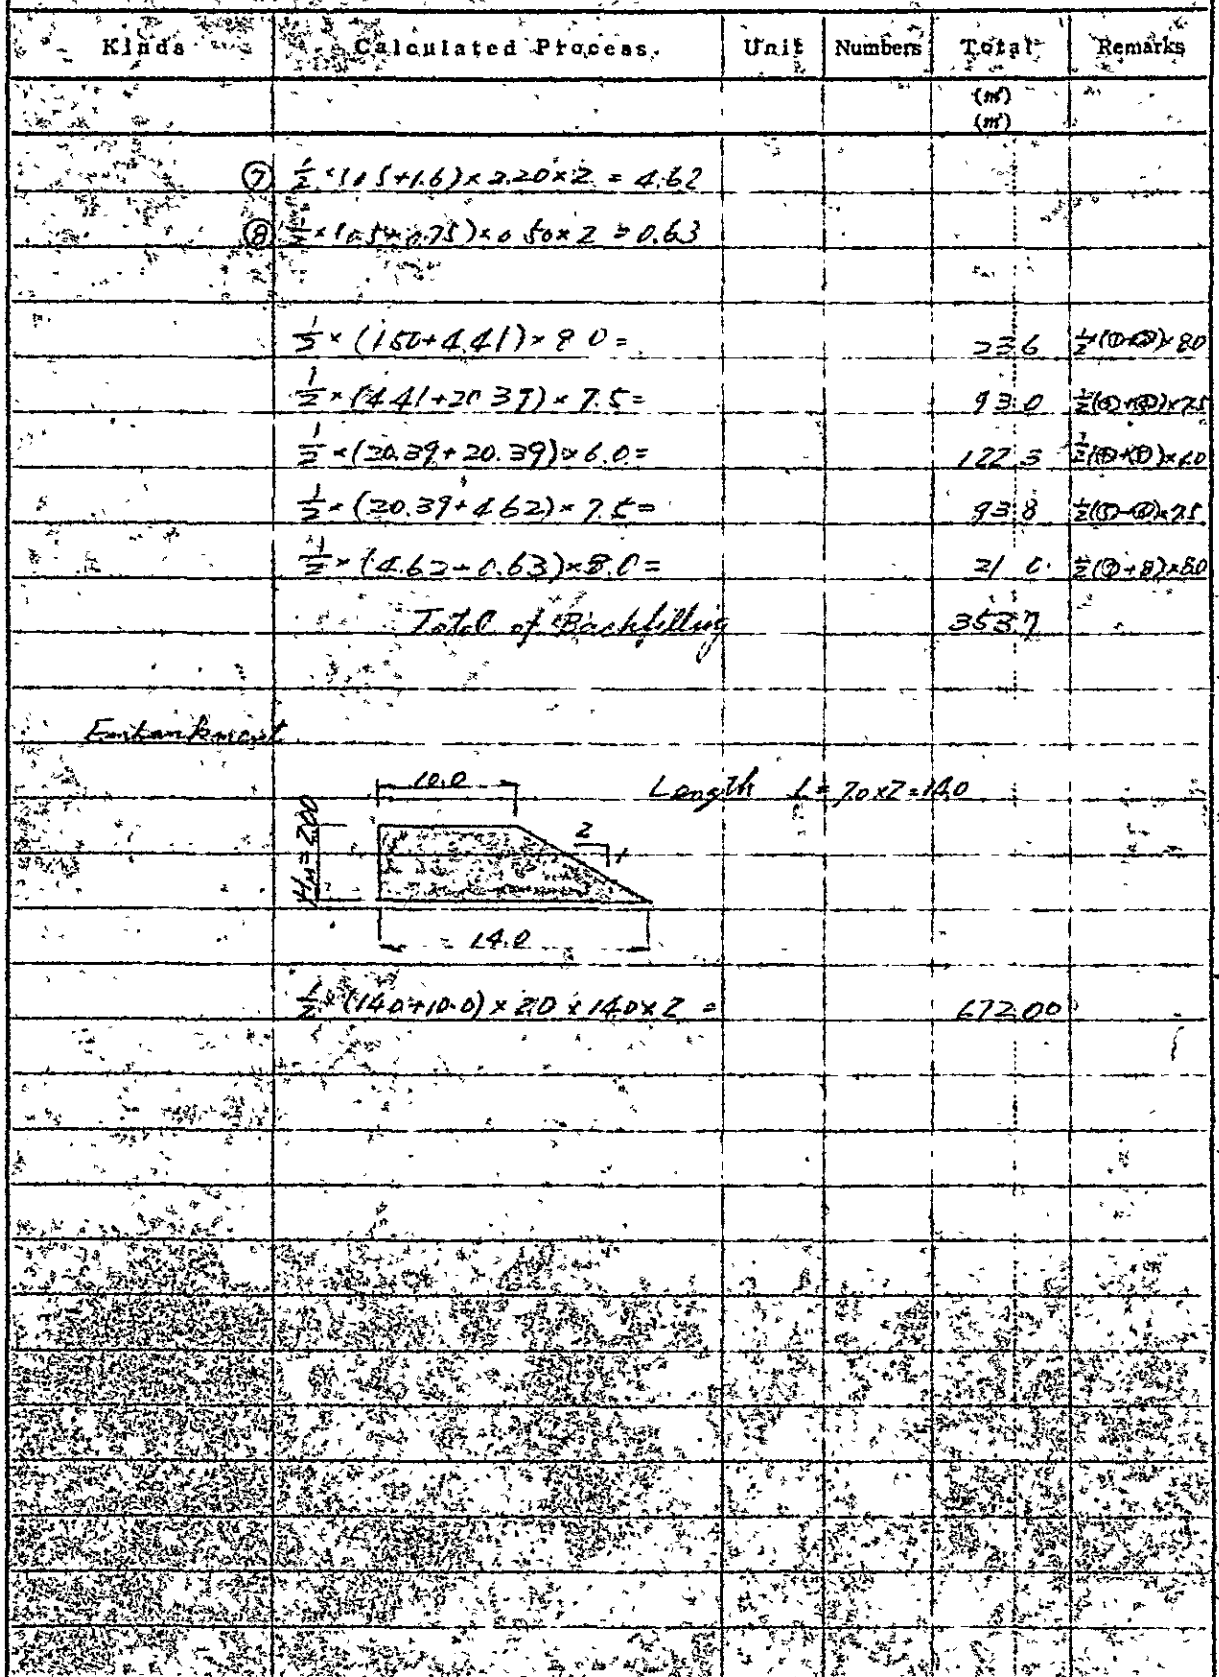 Kinds Calculated Process. Unit Numbers Total Remarks
(m²)
(m³)
⑦ 1/2 × (0.5+1.6) × 2.20 × 2 = 4.62
⑧ × 0.50 × 2 = 0.63
1/2 × (1.50+4.41) × 8.0 = 23.6
1/2 × (4.41+20.39) × 7.5 = 93.0
1/2 × (20.39+20.39) × 6.0 = 122.3
1/2 × (20.39+4.62) × 7.5 = 93.8
1/2 × (4.62+0.63) × 8.0 = 21.0
Total of Backfilling 353.7
Embankment
10.0 Length L = 7.0×2=14.0
2
1
14.0
1/2 × (14.0+10.0) × 2.0 × 14.0 × 2 = 672.00